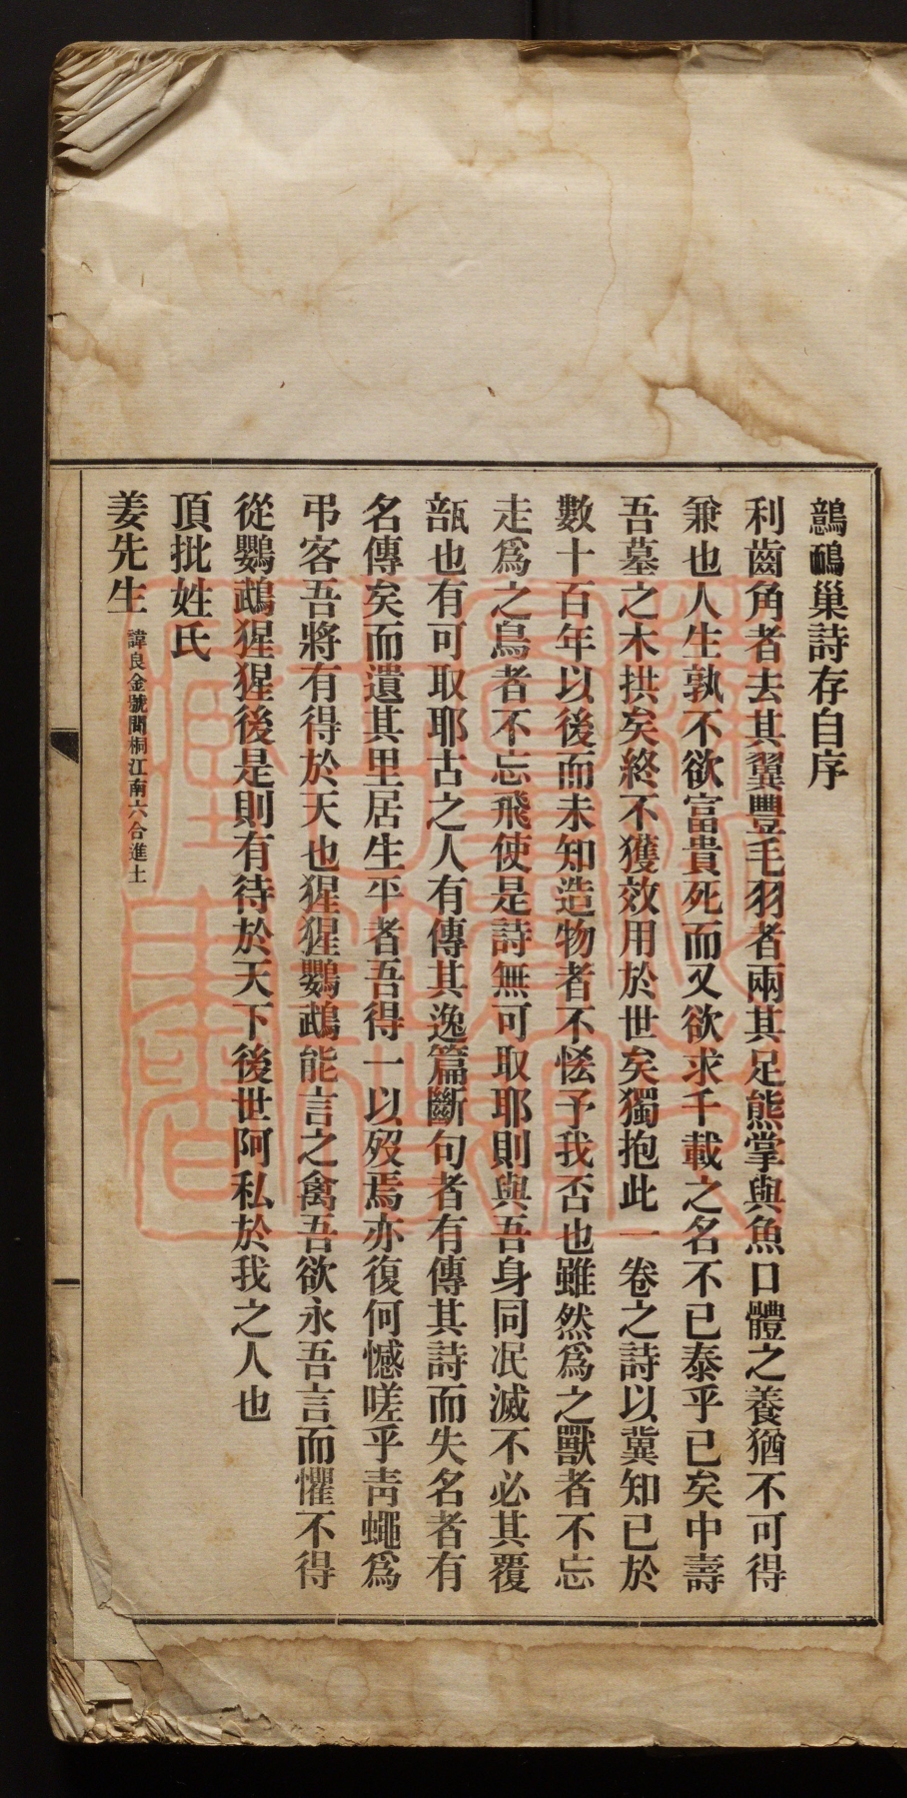 鷾鴯巢詩存自序
利齒角者去其翼豐毛羽者兩其足熊掌與魚口體之養猶不可得
兼也人生孰不欲富貴死而又欲求千載之名不已泰乎已矣中壽
吾墓之木拱矣終不獲效用於世矣獨抱此一卷之詩以冀知已於
數十百年以後而未知造物者不恡予我否也雖然爲之獸者不忘
走爲之鳥者不忘飛使是詩無可取耶則與吾身同泯滅不必其覆
瓿也有可取耶古之人有傳其逸篇斷句者有傳其詩而失名者有
名傳矣而遺其里居生平者吾得一以歿焉亦復何憾嗟乎靑蠅爲
弔客吾將有得於天也猩猩鸚鵡能言之禽吾欲永吾言而懼不得
從鸚鵡猩猩後是則有待於天下後世阿私於我之人也
頂批姓氏
姜先生 諱良金號閬桐江南六合進士